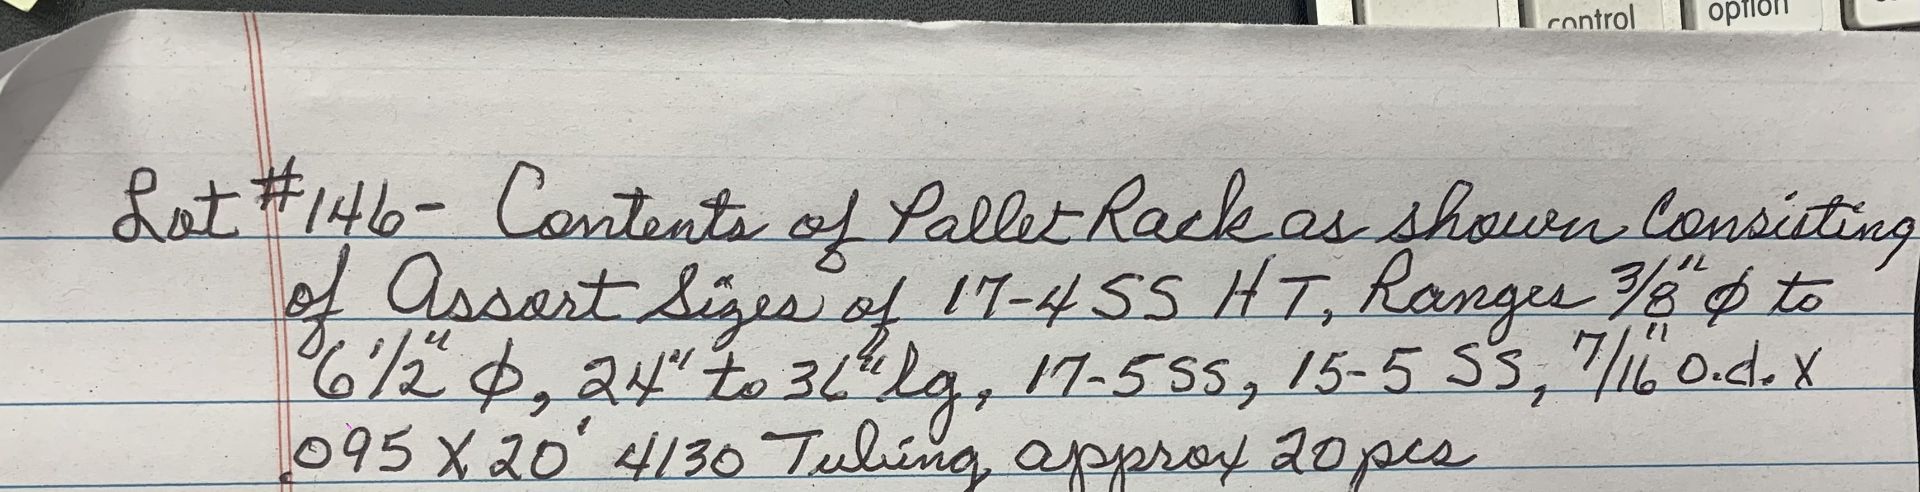 control
option
Lot #146- Contents of Pallet Rack as shown Consisting
of Assort Sizes of 17-4 SS HT, Ranges 3/8" ϕ to
6 1/2" ϕ, 24" to 36" lg, 17-5 SS, 15-5 SS, 7/16" o.d. X
.095 X 20' 4130 Tubing approx 20 pcs